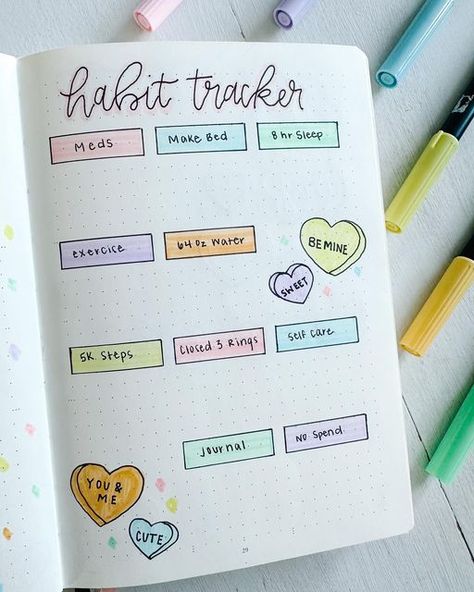 habit tracker
Meds
Make Bed
8 hr Sleep
exercice
64 oz Water
BE MINE
SWEET
5K Steps
Closed 3 Rings
Self Care
Journal
No Spend
YOU &
ME
CUTE
29